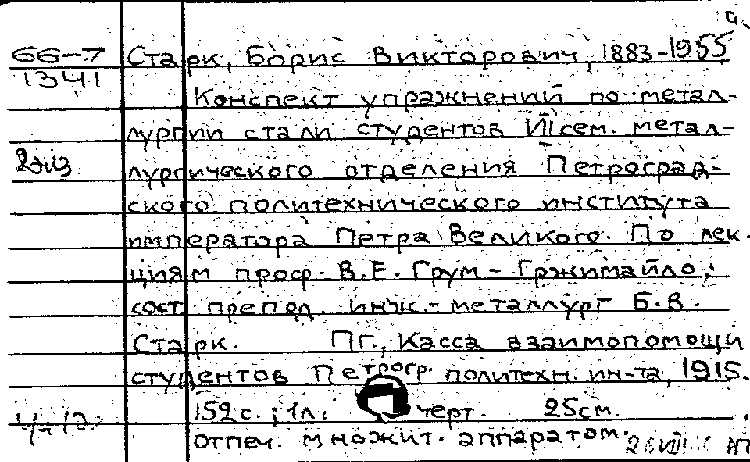 66-7 Старк, Борис Викторович, 1883-1955
1341
Конспект упражнений по метал-
лургии стали студентов VII сем. метал-
2экз лургического отделения Петроград-
ского политехнического института
императора Петра Великого. По лек.
циям проф. В.Е. Грум-Гржимайло;
сост. препод. инж.-металлург Б.В.
Старк. Пг., Касса взаимопомощи
студентов Петрогр. политехн. ин-та, 1915.
152с.; 1л. черт. 25см.
отпеч. множит. аппаратом.